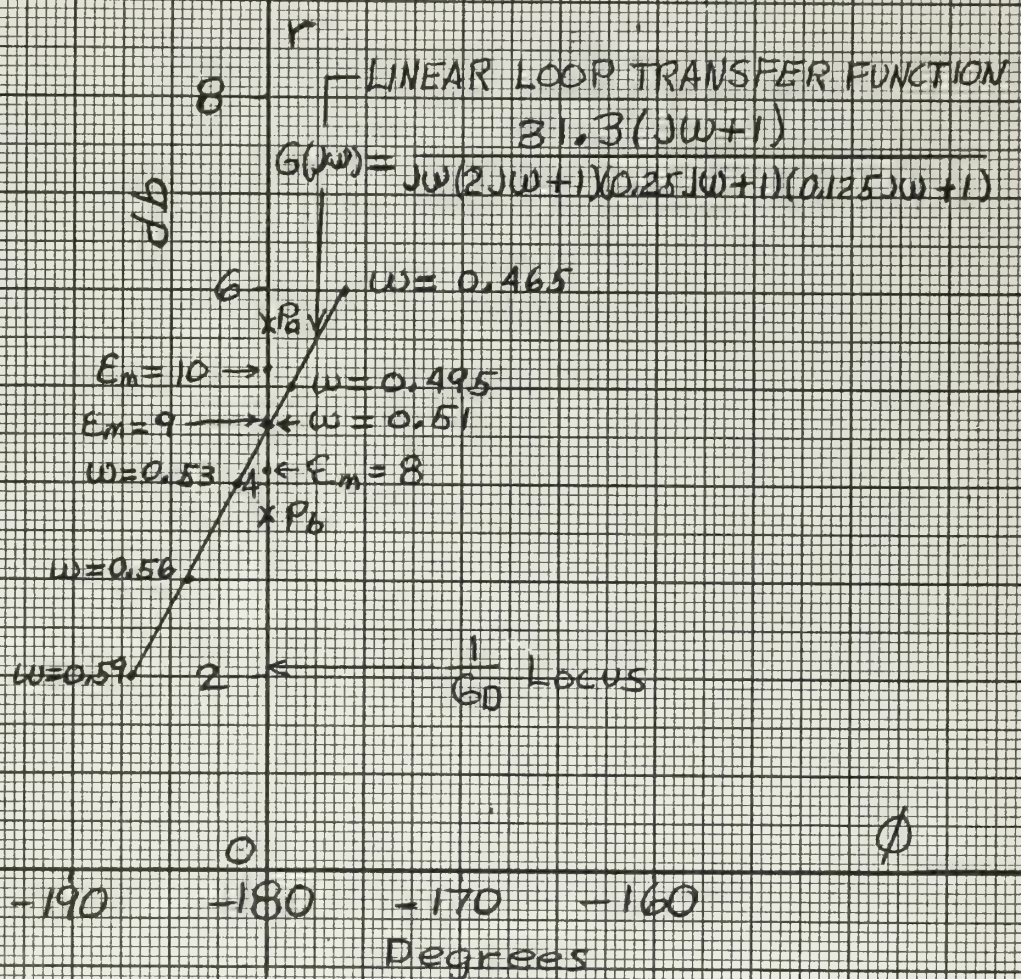 r
LINEAR LOOP TRANSFER FUNCTION
8
31.3(Jω+1)
G(Jω)=
Jω(2Jω+1)(0.25Jω+1)(0.125Jω+1)
db
6
ω= 0.465
Pa
Em= 10
ω=0.495
Em=9
ω=0.51
ω=0.53
4
Em=8
Pb
ω=0.56
ω=0.59
2
1
GD
Locus
0
φ
-190
-180
-170
-160
Degrees